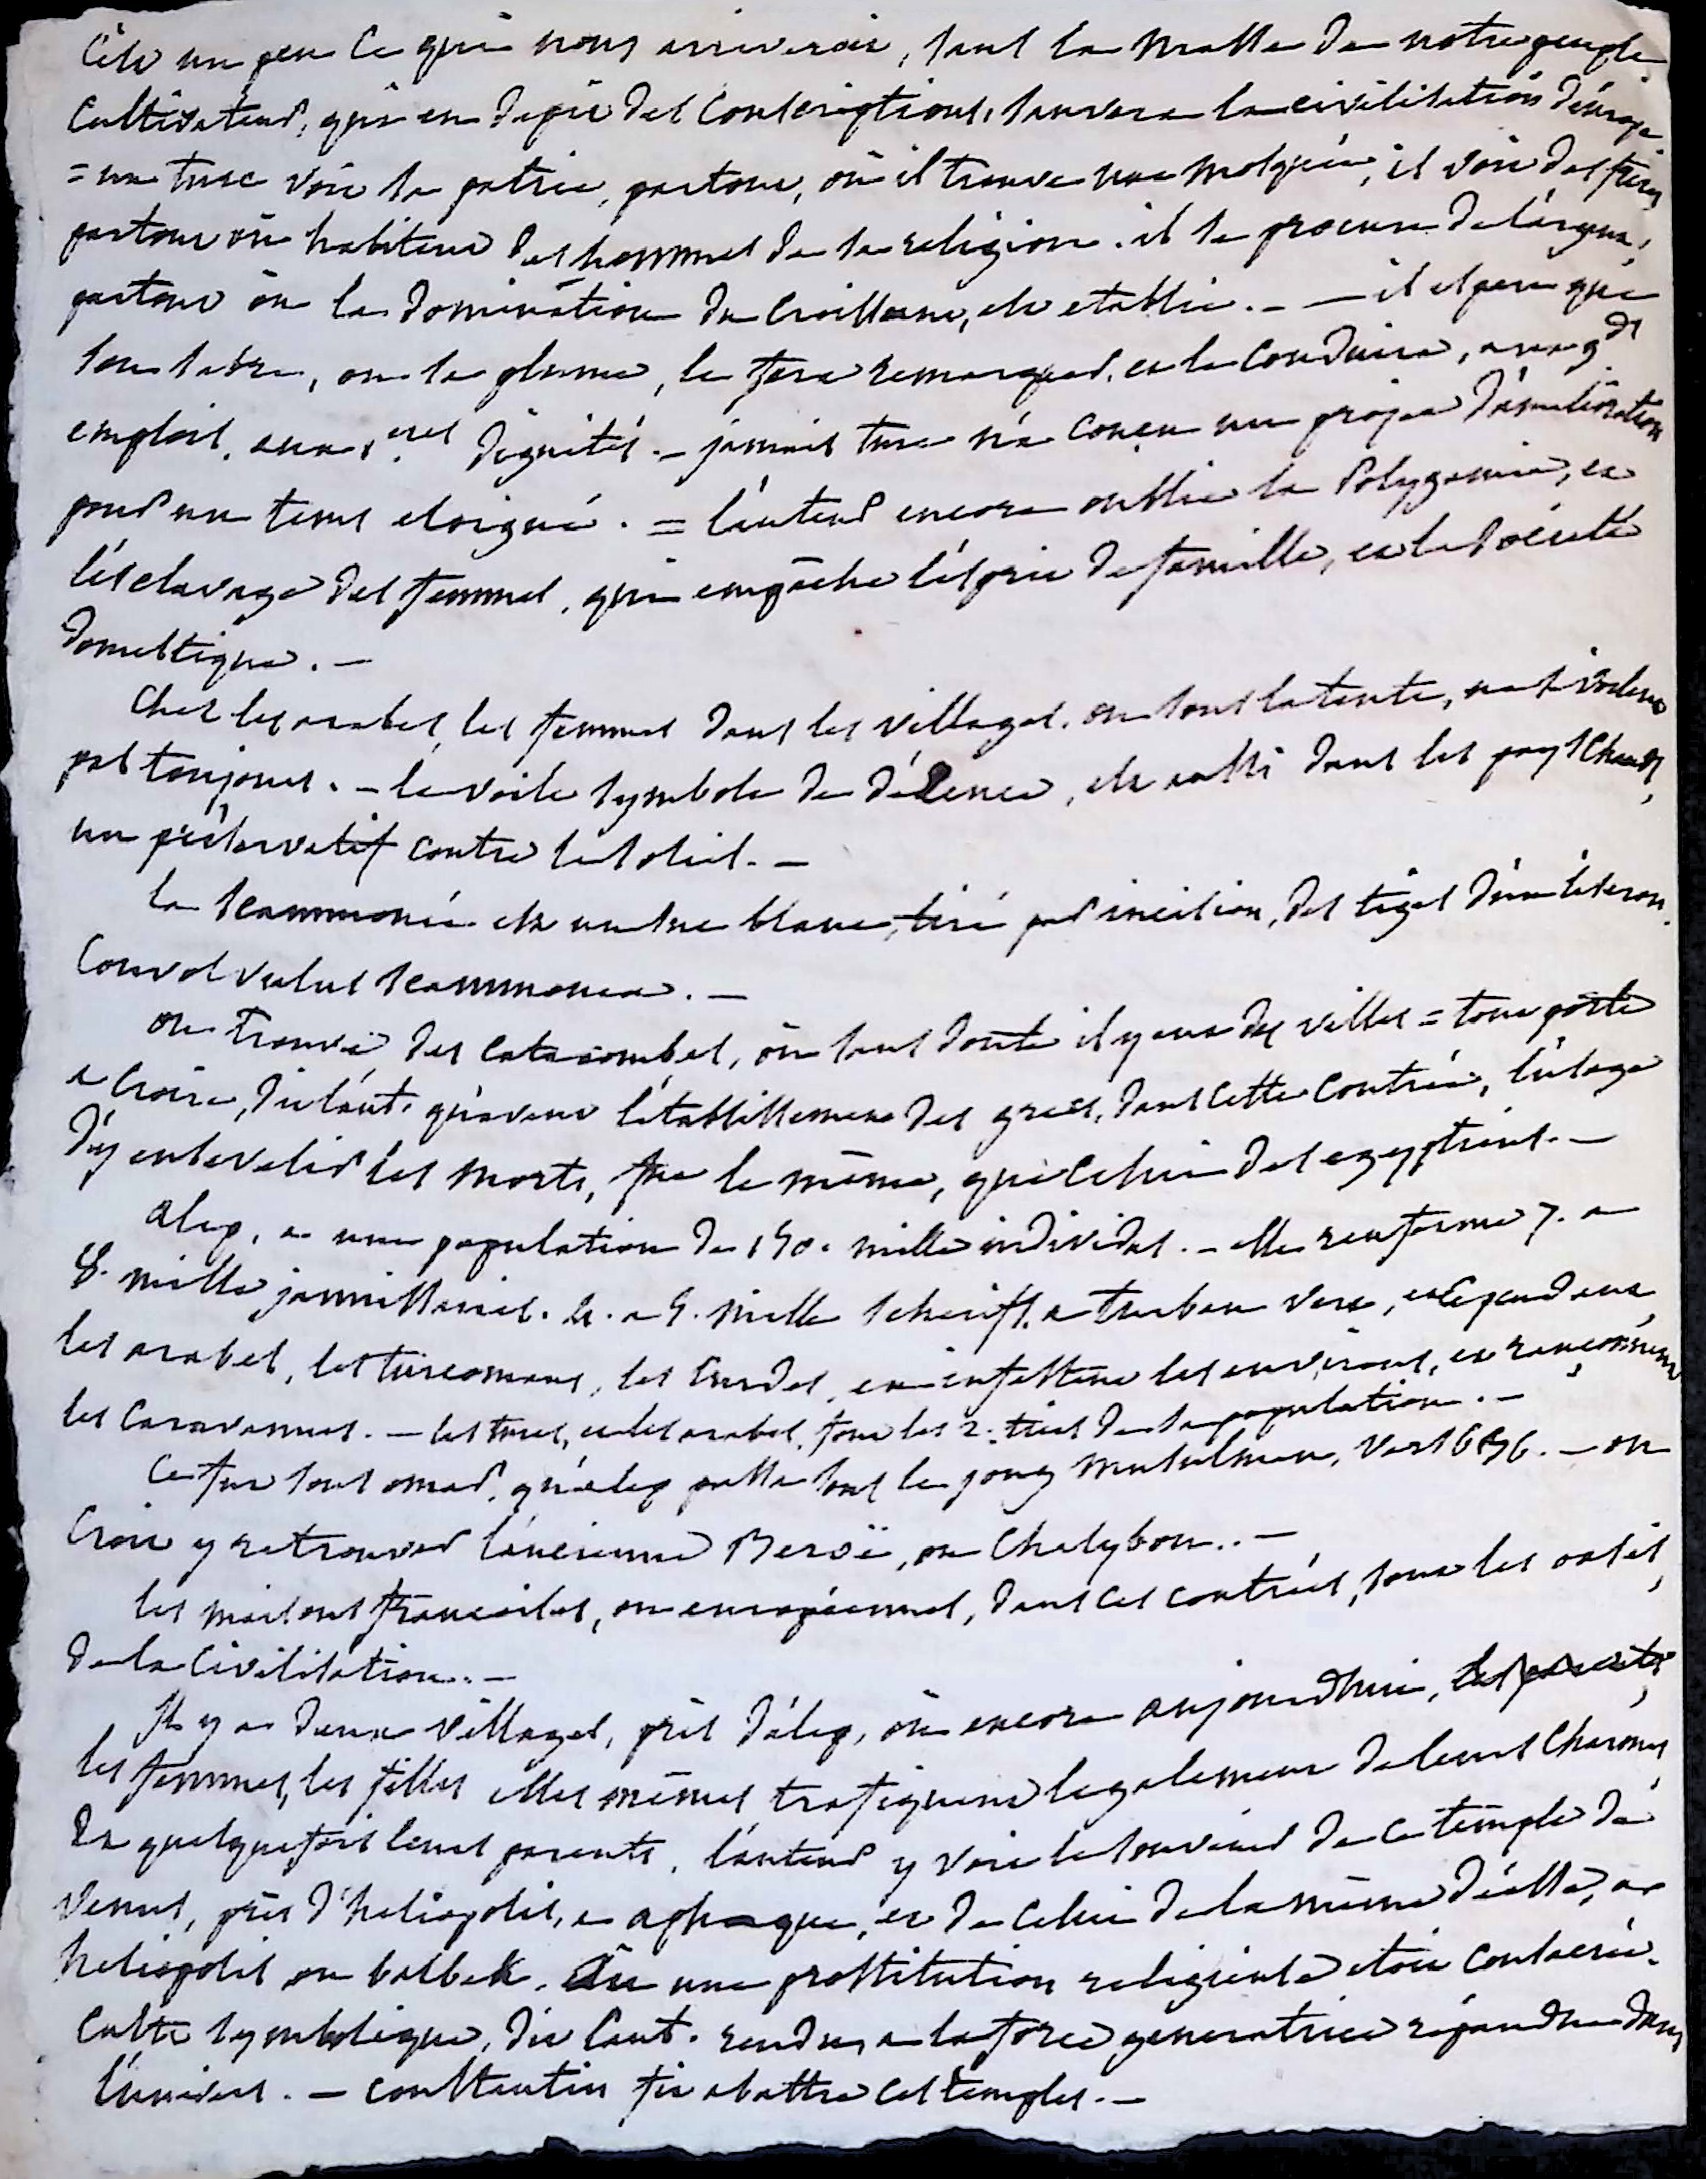 C'est un peu ce qui nous arriveroit, sans la masse de notre peuple
cultivateur, qui en depit des conscriptions, sauvera la civilisation d'europe.
= un turc voit sa patrie, partout, où il trouve une mosquée, il voit des frères
partout où habitent des hommes de sa religion. il se procure de l'argent,
partout où la domination du croissant, est etablie. - — il espere que
son sabre, ou sa plume, le fera remarquer, et le conduira, aux gds
emplois, aux 1.eres dignités. - jamais turc n'a conçu un projet d'amelioration
pour un tems eloigné. = l'auteur encore oublie la Polygamie, et
l'esclavage des femmes, qui empêche l'esprit de famille, et la société
domestique. -
Chez les arabes, les femmes dans les villages, ou sous la tente, ne se voilent
pas toujours. - le voile symbole de décence, est aussi dans les pays chauds,
un préservatif contre le soleil. -
la scammonée est un suc blanc, tiré par incision, des tiges d'un liseron.
Convolvulus scammonea. -
on trouve, des catacombes, où sans doute il y eut des villes = tout porte
a croire, dit l'aut. qu'avant l'établissement des grecs, dans cette contrée, l'usage
d'y ensevelir les morts, fut le même, que celui des egyptiens. -
alep, a une population de 150. mille individus. - elle renferme 7. a
8. mille jannissaires. 4. a 5. mille scheriffs a turban vert, et cependant
les arabes, les turcomans, les curdes, en infestent les environs, et rançonnent
les caravannes. — les turcs, et les arabes, font les 2. tiers de sa population. -
Ce fut sous omar, qu'alep passa sous le joug musulman, vers 636. - on
croit y retrouver l'ancienne Beroë, ou Chalybon.. -
les maisons françaises, ou européennes, dans ces contrées, sont les oasis,
de la civilisation.. -
Il y a deux villages, près d'alep, où encore aujourdhui,
les femmes, les filles elles mêmes trafiquent legalement de leurs charmes,
et quelquefois leurs parents. l'auteur y voit le souvenir de ce temple de
venus, près d'heliopolis, a aphaque, et de celui de la même déesse, a
heliopolis ou balbek. où une prostitution religieuse etoit consacrée.
culte symbolique, dit l'aut. rendu, a la force generatrice répandue dans
l'univers. — constantin fit abattre ces temples. -